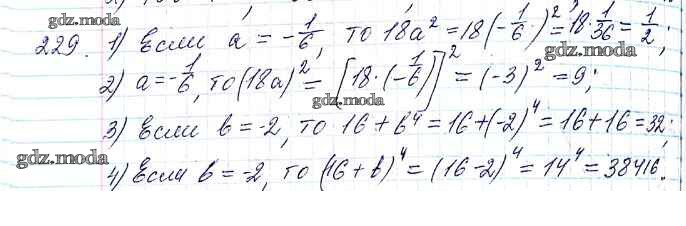 gdz.moda
229. 1) Если a = -1/6, то 18a² = 18(-1/6)² = 18·1/36 = 1/2;
gdz.moda
2) a = -1/6, то (18a)² = [18·(-1/6)]² = (-3)² = 9;
gdz.moda
3) Если b = -2, то 16 + b⁴ = 16+(-2)⁴ = 16+16 = 32;
gdz.moda
4) Если b = -2, то (16+b)⁴ = (16-2)⁴ = 14⁴ = 38416.